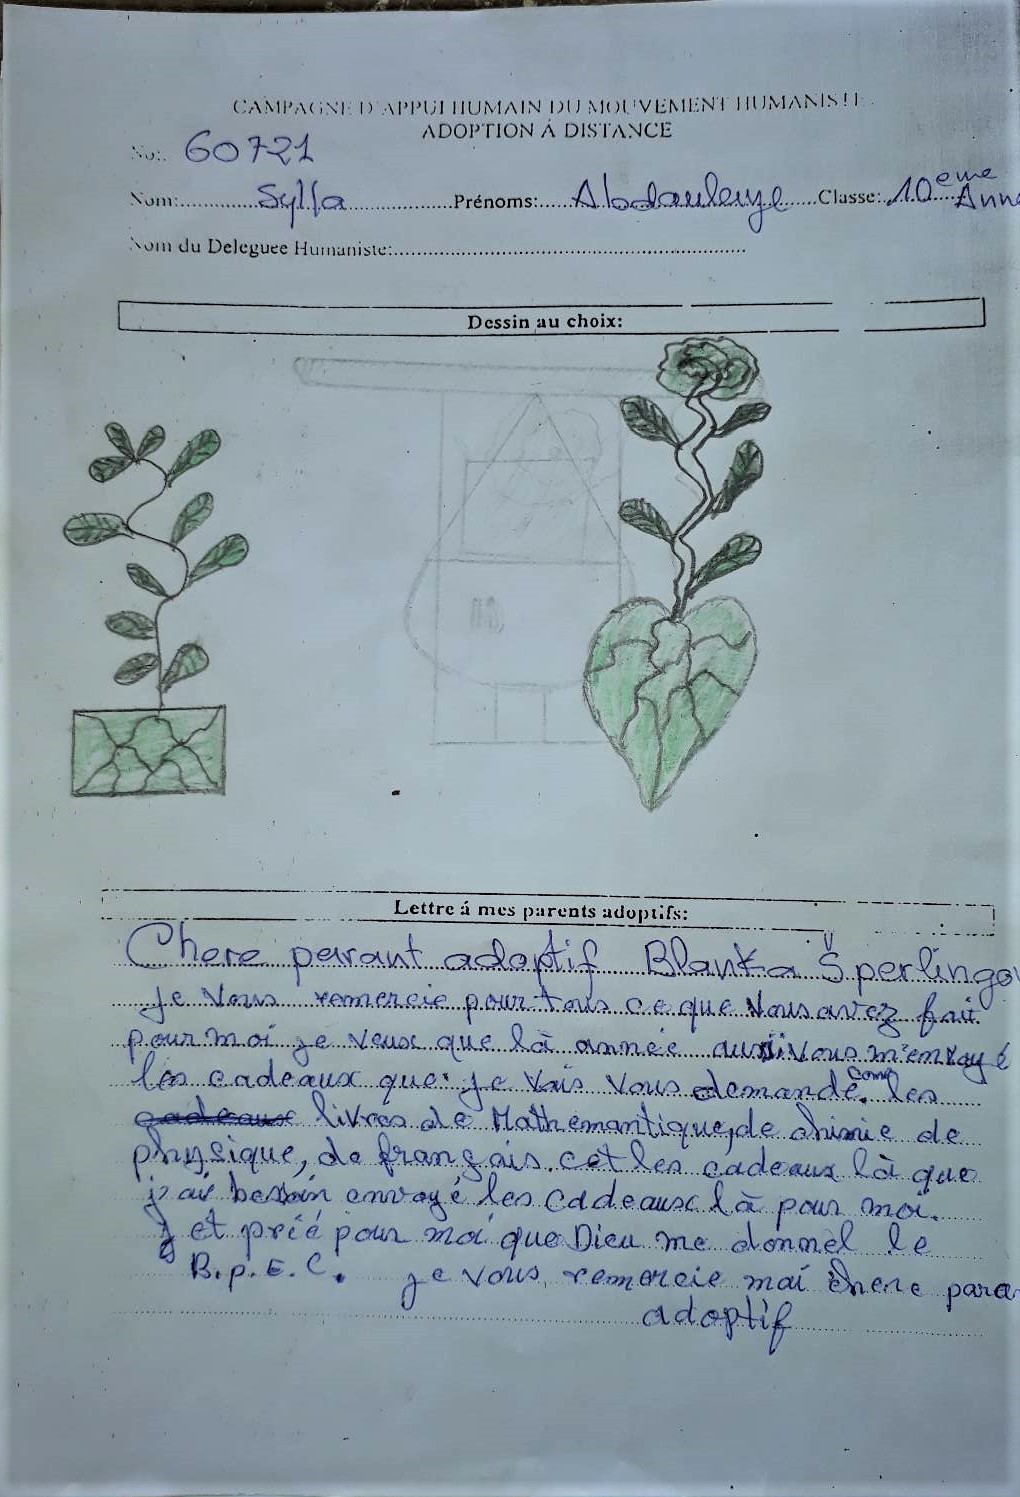 CAMPAGNE D'APPUI HUMAIN DU MOUVEMENT HUMANISTE
ADOPTION Á DISTANCE
No: 60721
Nom: Sylla Prénoms: Abdoulaye Classe: 10eme Anné
Nom du Deleguee Humaniste:
Dessin au choix:
Lettre á mes parents adoptifs:
Chere parant adoptif Blanka Šperlingo
je vous remercie pour tous ce que vous avez fait
pour moi je veux que là année aussi vous m'envoyé
les cadeaux que je vais vous demandé. Come les
livres de Mathémantique, de chimie de
physique, de français. cet les cadeaux là que
j'ai besoin envoyé les cadeaux là pour moi.
et prié pour moi que Dieu me donnel le
B.p.E.C. je vous remercie moi chere para
adoptif